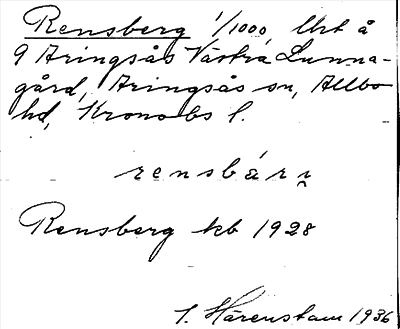 Rensberg 1/1000, Urt å
9 Aringsås Västra Lunna-
gård, Aringsås sn, Allbo
hd, Kronobs l.
rensbærɪ̯
Rensberg kb 1928
I. Härenstam 1936